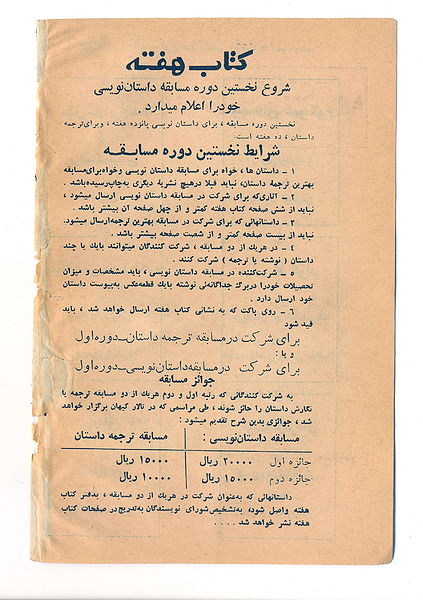 کتاب هفته
شروع نخستین دوره مسابقه داستان‌نویسی
خود را اعلام میدارد .
نخستین دوره مسابقه ، برای داستان نویسی پانزده هفته ، و برای ترجمه
داستان ، ده هفته است.
شرایط نخستین دوره مسابقه
۱ – داستان ها ، خواه برای مسابقهٔ داستان نویسی و خواه برای مسابقه
بهترین ترجمهٔ داستان، نباید قبلا در هیچ نشریهٔ دیگری به‌چاپ رسیده باشد .
۲ – آثاری که برای شرکت در مسابقه داستان نویسی ارسال میشود ،
نباید از شش صفحه کتاب هفته کمتر و از چهل صفحه آن بیشتر باشد .
۳ – داستانهائی که برای شرکت در مسابقه بهترین ترجمه ارسال میشود.
نباید از بیست صفحه کمتر و از شصت صفحه بیشتر باشد .
٤ – در هریک از دو مسابقه ، شرکت کنندگان میتوانند با یك یا چند
داستان ( نوشته یا ترجمه ) شرکت کنند .
۵ – شرکت‌کننده در مسابقه داستان نویسی ، باید مشخصات و میزان
تحصیلات خود را در برگ جداگانه‌ئی نوشته با یك قطعه عکس به‌پیوست داستان
خود ارسال دارد .
۶ – روی پاکت که به نشانی کتاب هفته ارسال خواهد شد ، باید
قید شود
برای شرکت در مسابقه ترجمه داستان – دوره اول
و یا :
برای شرکت در مسابقه داستان‌نویسی – دوره اول
جوائز مسابقه
به شرکت کنندگانی که رتبه اول و دوم هریك از دو مسابقه ترجمه یا
نگارش داستان را حائز شوند ، طی مراسمی که در تالار کیهان برگزار خواهد
شد ، جوائزی بدین شرح تقدیم میشود :
مسابقه داستان‌نویسی : مسابقه ترجمه داستان
جائزه اول ۲۰۰۰۰ ریال ۱۵۰۰۰ ریال
جائزه دوم ۱۵۰۰۰ ریال ۱۰۰۰۰ ریال
داستانهائی که به‌عنوان شرکت در هریك از دو مسابقه ، بدفتر کتاب
هفته واصل شود، به‌تشخیص شورای نویسندگان به‌تدریج در صفحات کتاب
هفته نشر خواهد شد . . . .